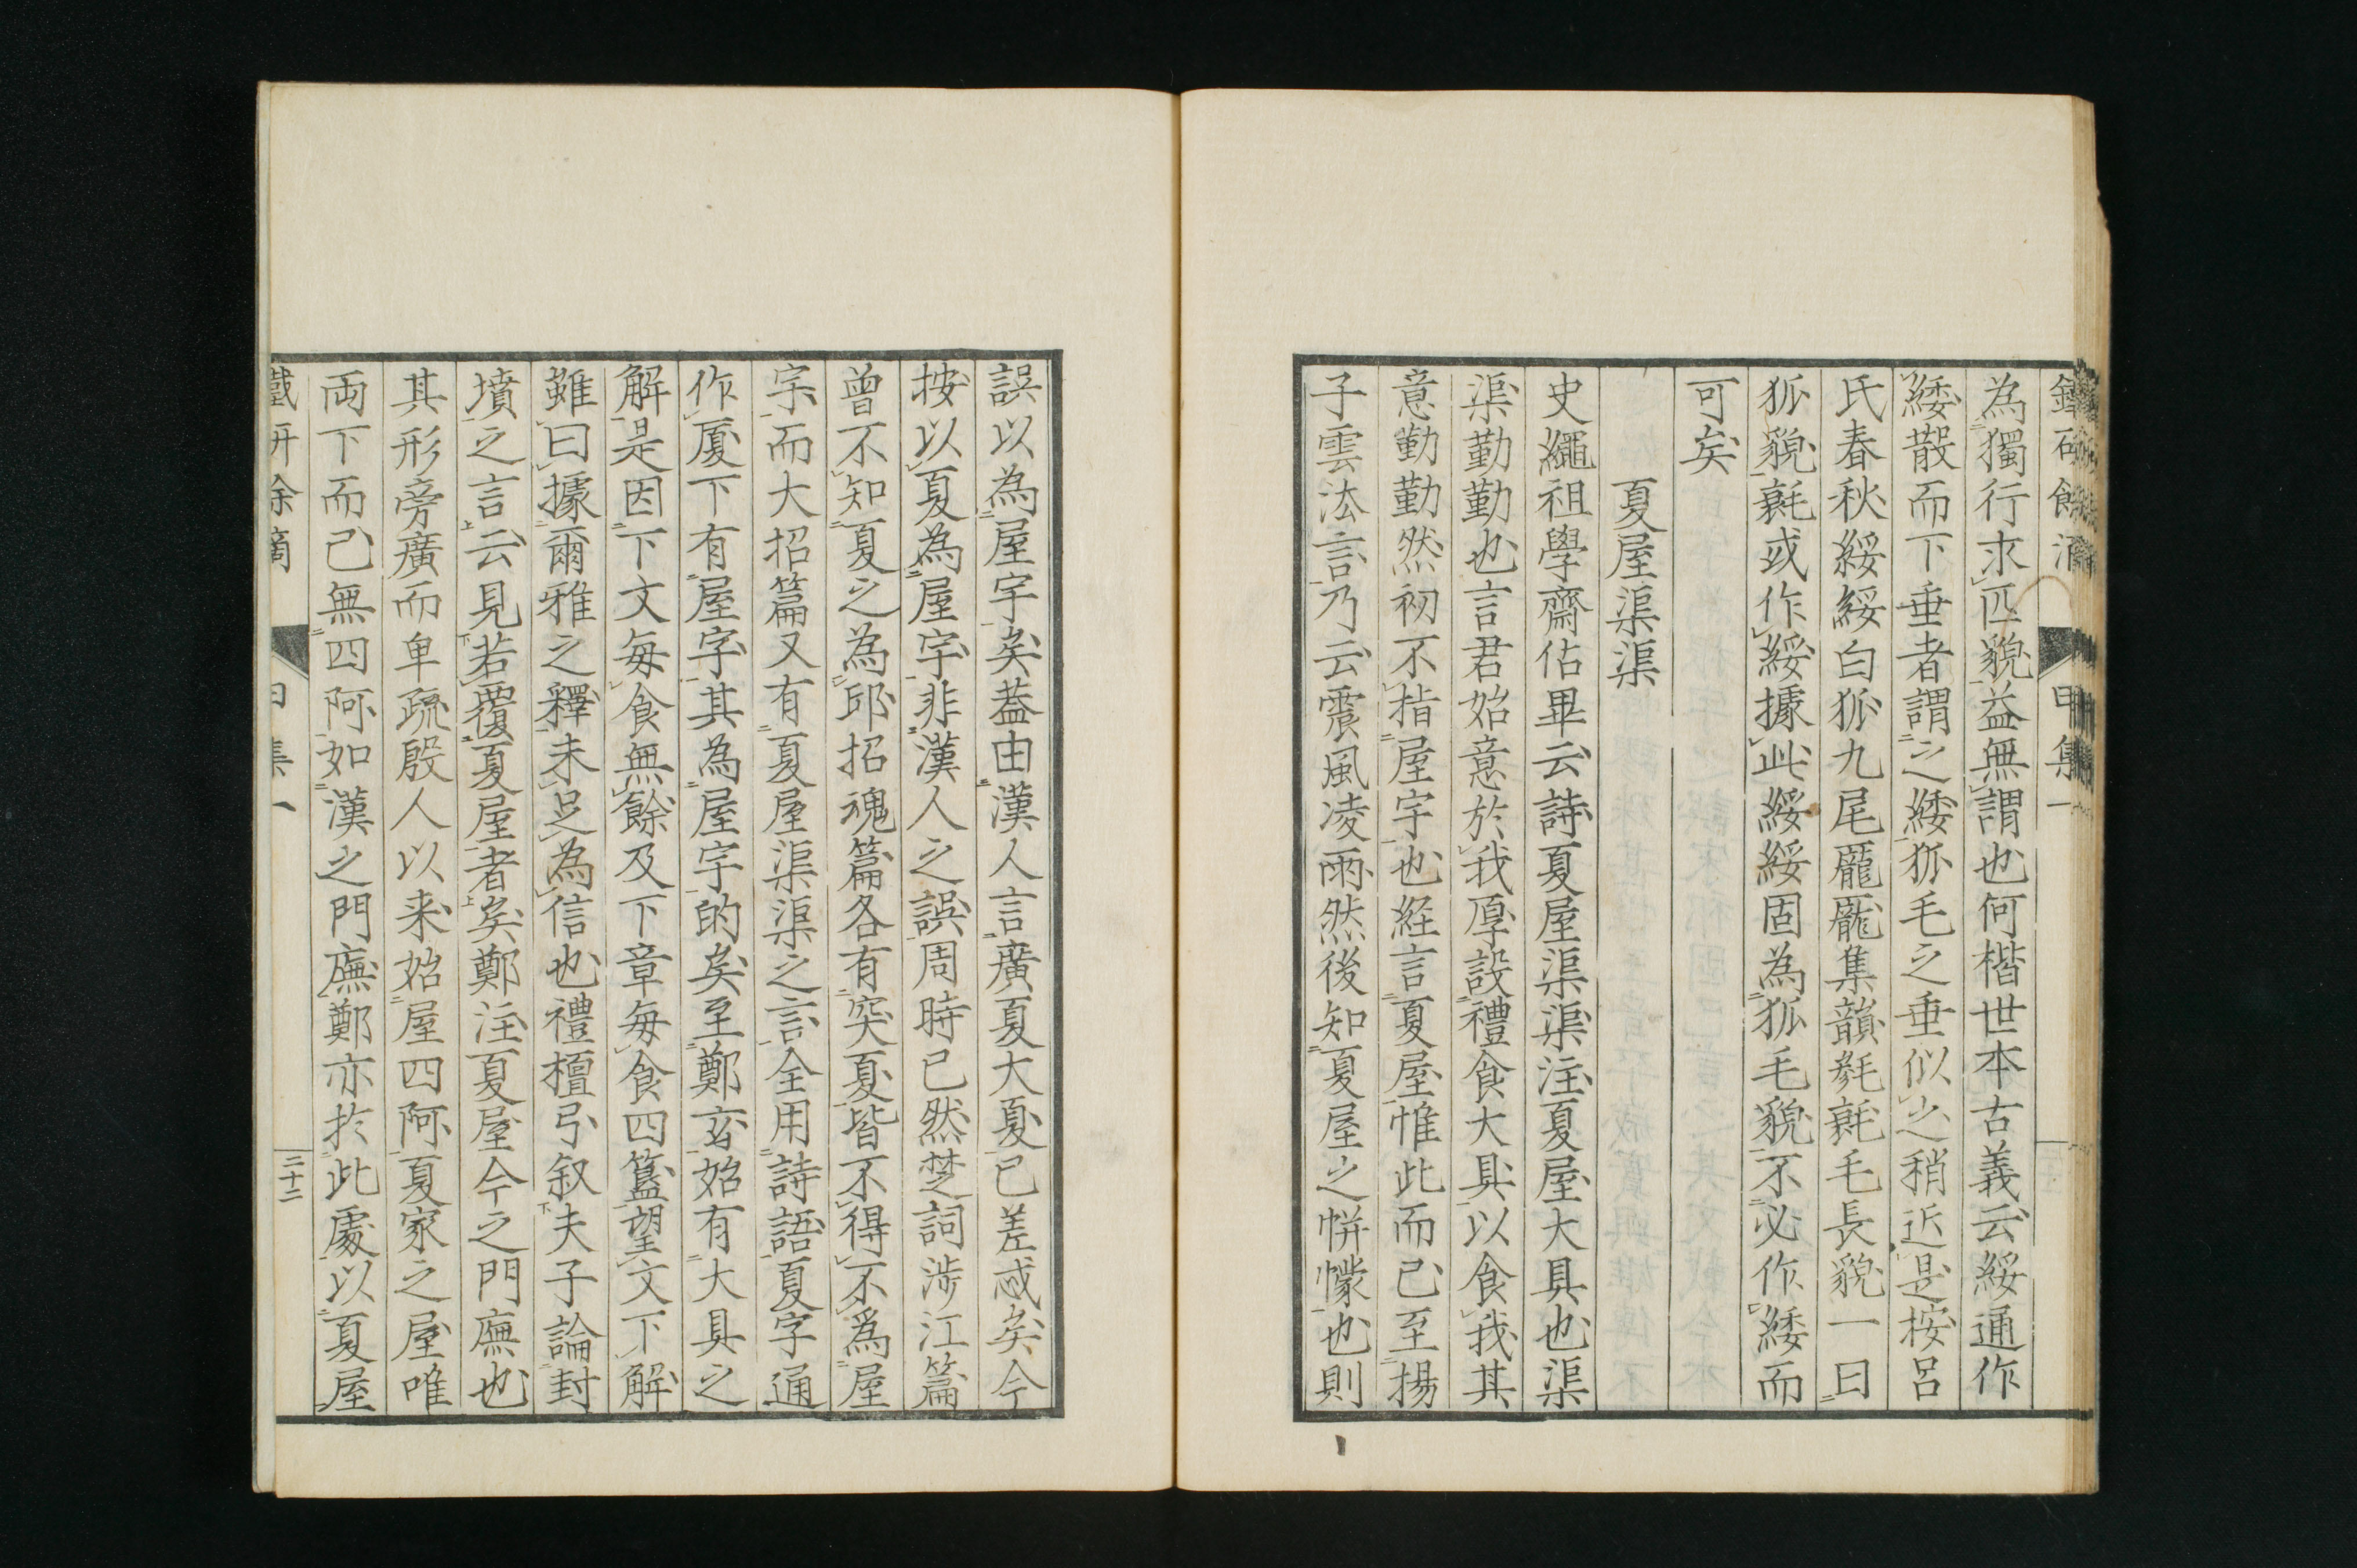 為獨行求匹貌益無謂也何楷世本古義云綏通作
緌散而下垂者謂之緌狐毛之垂似之稍近是按呂
氏春秋綏綏白狐九尾龐龐集韻毵毵毛長貌一曰
狐貌毵或作綏據此綏綏固為狐毛貌不必作緌而
可矣
夏屋渠渠
史繩祖學齋佔畢云詩夏屋渠渠注夏屋大具也渠
渠勤勤也言君始意於我厚設禮食大具以食我其
意勤勤然初不指屋宇也経言夏屋惟此而已至揚
子雲法言乃云震風凌雨然後知夏屋之帡幪也則
誤以為屋宇矣葢由漢人言廣夏大夏已差忒矣今
按以夏為屋宇非漢人之誤周時已然楚詞渉江篇
曾不知夏之為邱招魂篇各有突夏皆不得不為屋
宇而大招篇又有夏屋渠渠之言全用詩語夏字通
作厦下有屋字其為屋宇的矣至鄭玄始有大具之
解是因下文毎食無餘及下章毎食四簋望文下解
雖曰據爾雅之釋未足為信也禮檀弓叙夫子論封
墳之言云見若覆夏屋者矣鄭注夏屋今之門廡也
其形旁廣而卑疏殷人以来始屋四阿夏家之屋唯
両下而已無四阿如漢之門廡鄭亦於此處以夏屋
集一
二十二